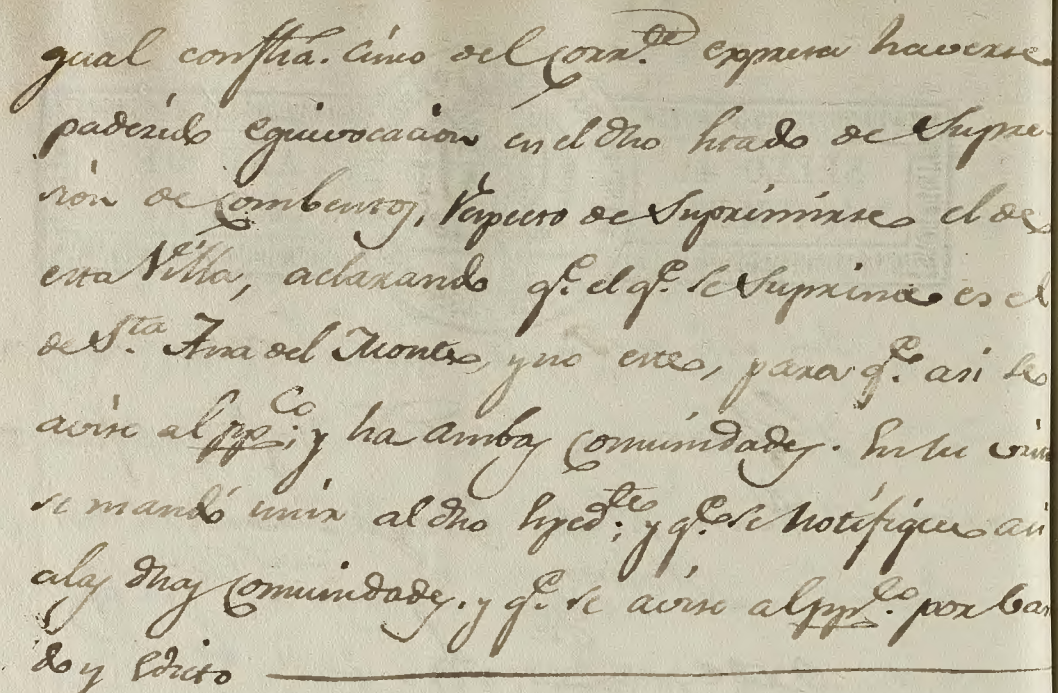 gual con fha. cinco del corr.te expresa haverse
padecido equivocacion en el dho estado de Supre
sión de Combentos, respecto de Suprimirse el de
esta Villa, aclarando q.e el q.e se Suprime es el
de S.ta Ana del Monte, y no este, para q.e asi se
avise al pp.co; y ha ambas comunidades. En su vista
se mandó unir al dho Exped.te; y q.e se notifique asi
a las dhas comunidades. y q.e se avise al pp.co por ban
do y Edicto